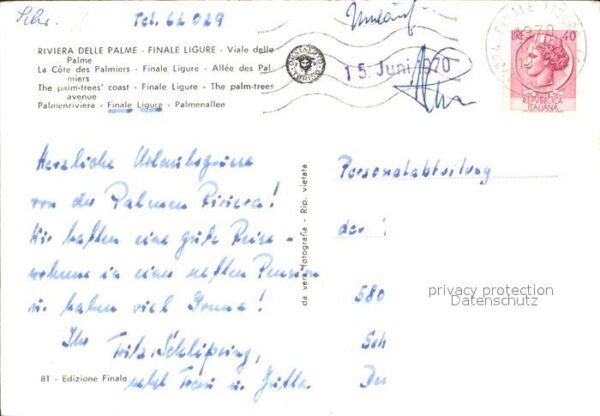 Tel. 62 029
Umlauf
RIVIERA DELLE PALME - FINALE LIGURE - Viale delle
Palme
La Côte des Palmiers - Finale Ligure - Allée des Pal
miers
The palm-trees' coast - Finale Ligure - The palm-trees
avenue
Palmenriviera - Finale Ligure - Palmenallee
15. Juni 1970
FINALE LIGURE
1970
LIRE 40
REPVBBLICA
ITALIANA
Herzliche Urlaubsgrüsse
von der Palmen Riviera!
Wir hatten eine gute Reise -
wohnen in einer netten Pension
u. haben viel Sonne!
Ihr Fritz Schlipsing,
nebst Frau u. Jutta
81 - Edizione Finale
da vera fotografia - Rip. vietata
Personalabteilung
der
580
Sch
privacy protection
Datenschutz